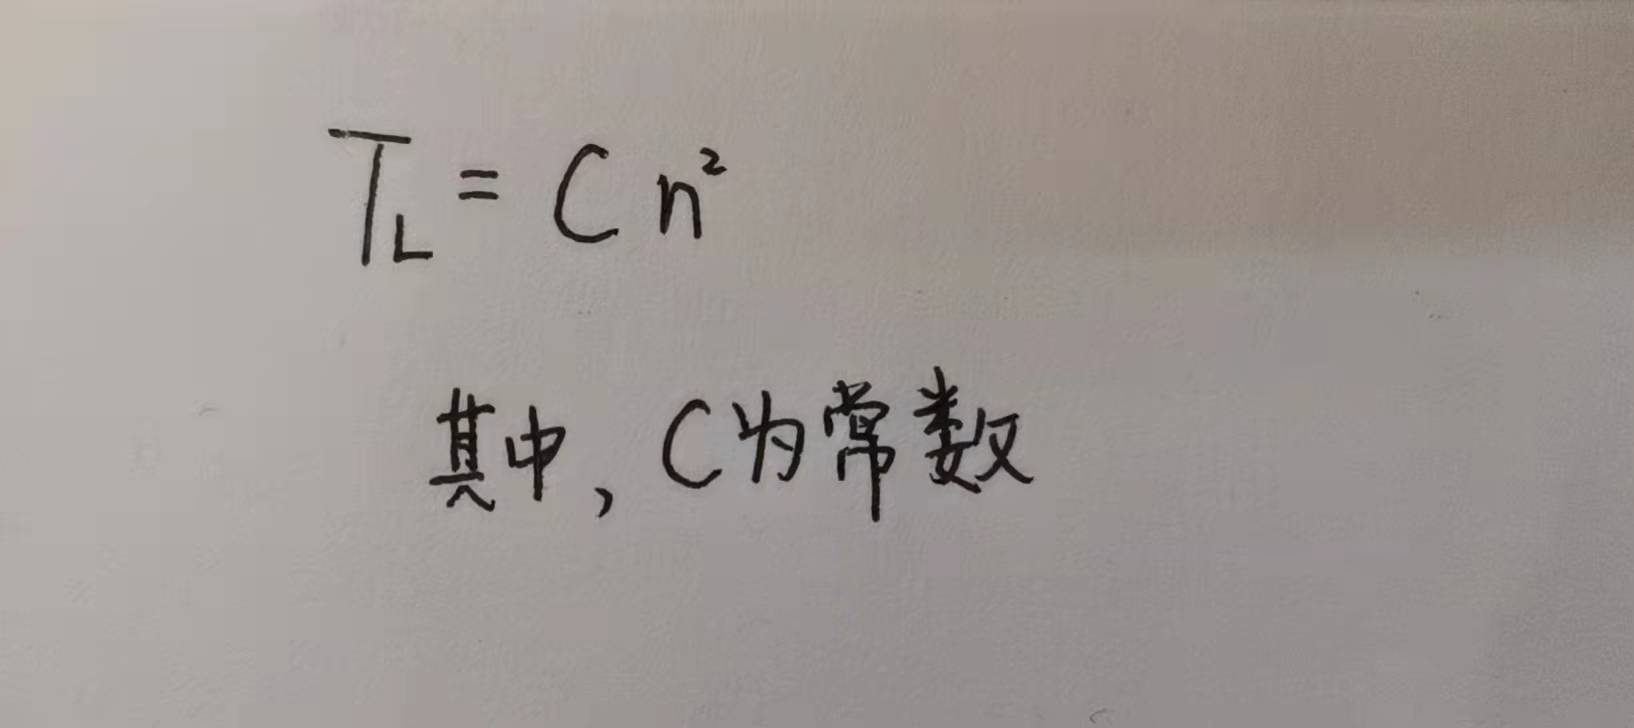 T_L = C n²
其中, C为常数